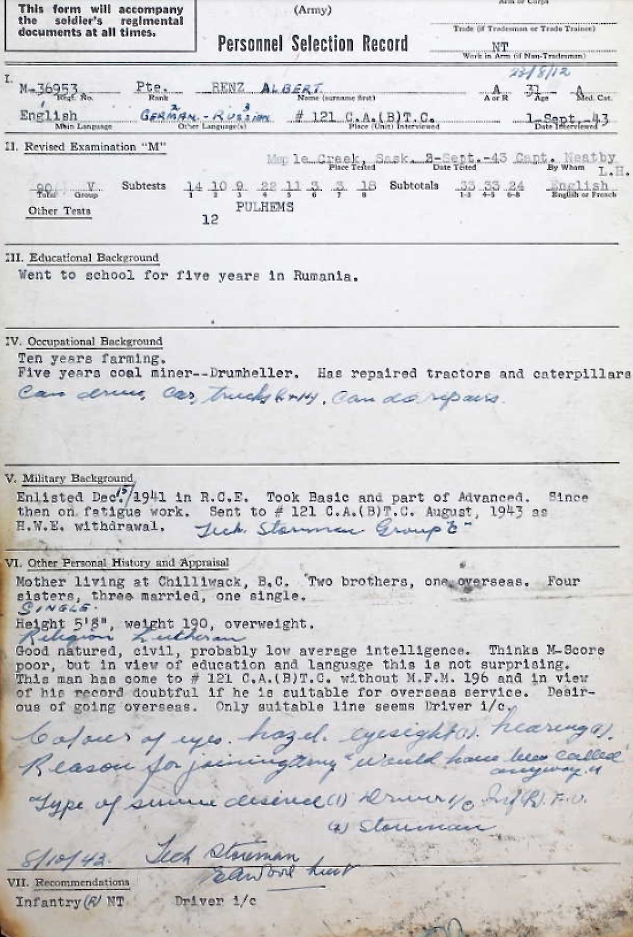 This form will accompany
the soldier's regimental
documents at all times.
(Army)
Personnel Selection Record
Arm or Corps
Trade (if Tradesman or Trade Trainee)
NT
Work in Arm (if Non-Tradesman)
I.
23/8/12
M-36953 Pte. RENZ ALBERT A 31 A
Regt. No. Rank Name (surname first) A or R Age Med. Cat.
1 2 3
English GERMAN - RUSSIAN # 121 C.A.(B)T.C. 1-Sept.-43
Main Language Other Language(s) Place (Unit) Interviewed Date Interviewed
II. Revised Examination "M"
Maple Creek, Sask. 3-Sept.-43 Capt. Neatby
Place Tested Date Tested By Whom L.H.
90 V Subtests 14 10 9 22 11 3 3 18 Subtotals 33 33 24 English
Total Group 1 2 3 4 5 6 7 8 1-3 4-5 6-8 English or French
Other Tests PULHEMS
12
III. Educational Background
Went to school for five years in Rumania.
IV. Occupational Background
Ten years farming.
Five years coal miner--Drumheller. Has repaired tractors and caterpillars
Can drive car, trucks, can do repairs.
V. Military Background
Enlisted Dec. 15/1941 in R.C.E. Took Basic and part of Advanced. Since
then on fatigue work. Sent to # 121 C.A.(B)T.C. August, 1943 as
H.W.E. withdrawal. Tech. Storeman Group "C"
VI. Other Personal History and Appraisal
Mother living at Chilliwack, B.C. Two brothers, one overseas. Four
sisters, three married, one single.
SINGLE.
Height 5'8", weight 190, overweight.
Religion Lutheran
Good natured, civil, probably low average intelligence. Thinks M-Score
poor, but in view of education and language this is not surprising.
This man has come to # 121 C.A.(B)T.C. without M.F.M. 196 and in view
of his record doubtful if he is suitable for overseas service. Desir-
ous of going overseas. Only suitable line seems Driver i/c.
Colour of eyes. hazel. eyesight(1). hearing(1).
Reason for joining army "would have been called
anyway"
Type of service desired (1) Driver i/c Inf(R)
(2) Storeman
8/10/43. Tech Storeman
VII. Recommendations
Infantry (R) NT Driver i/c